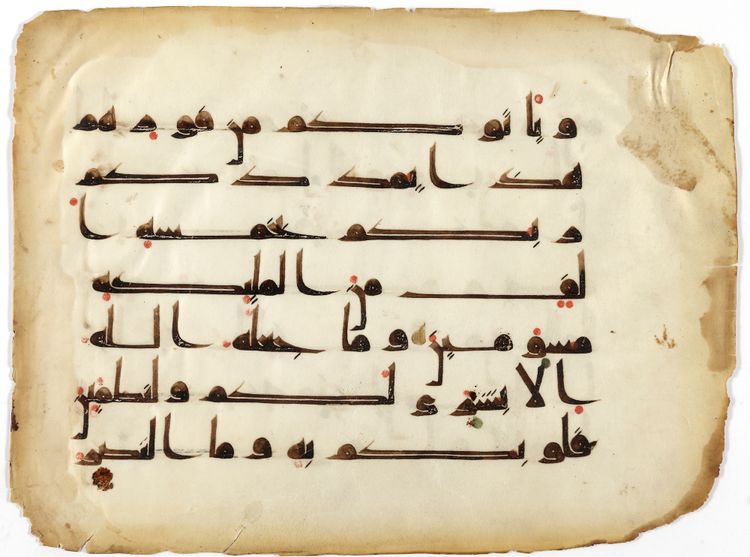 وياتوكم من فورهم
هذا يمددكم
ربكم بخمسه ا
لف من الملئكه
مسومين وما جعله الله
الا بشرى لكم ولتطمئن
قلوبكم به وما النصر